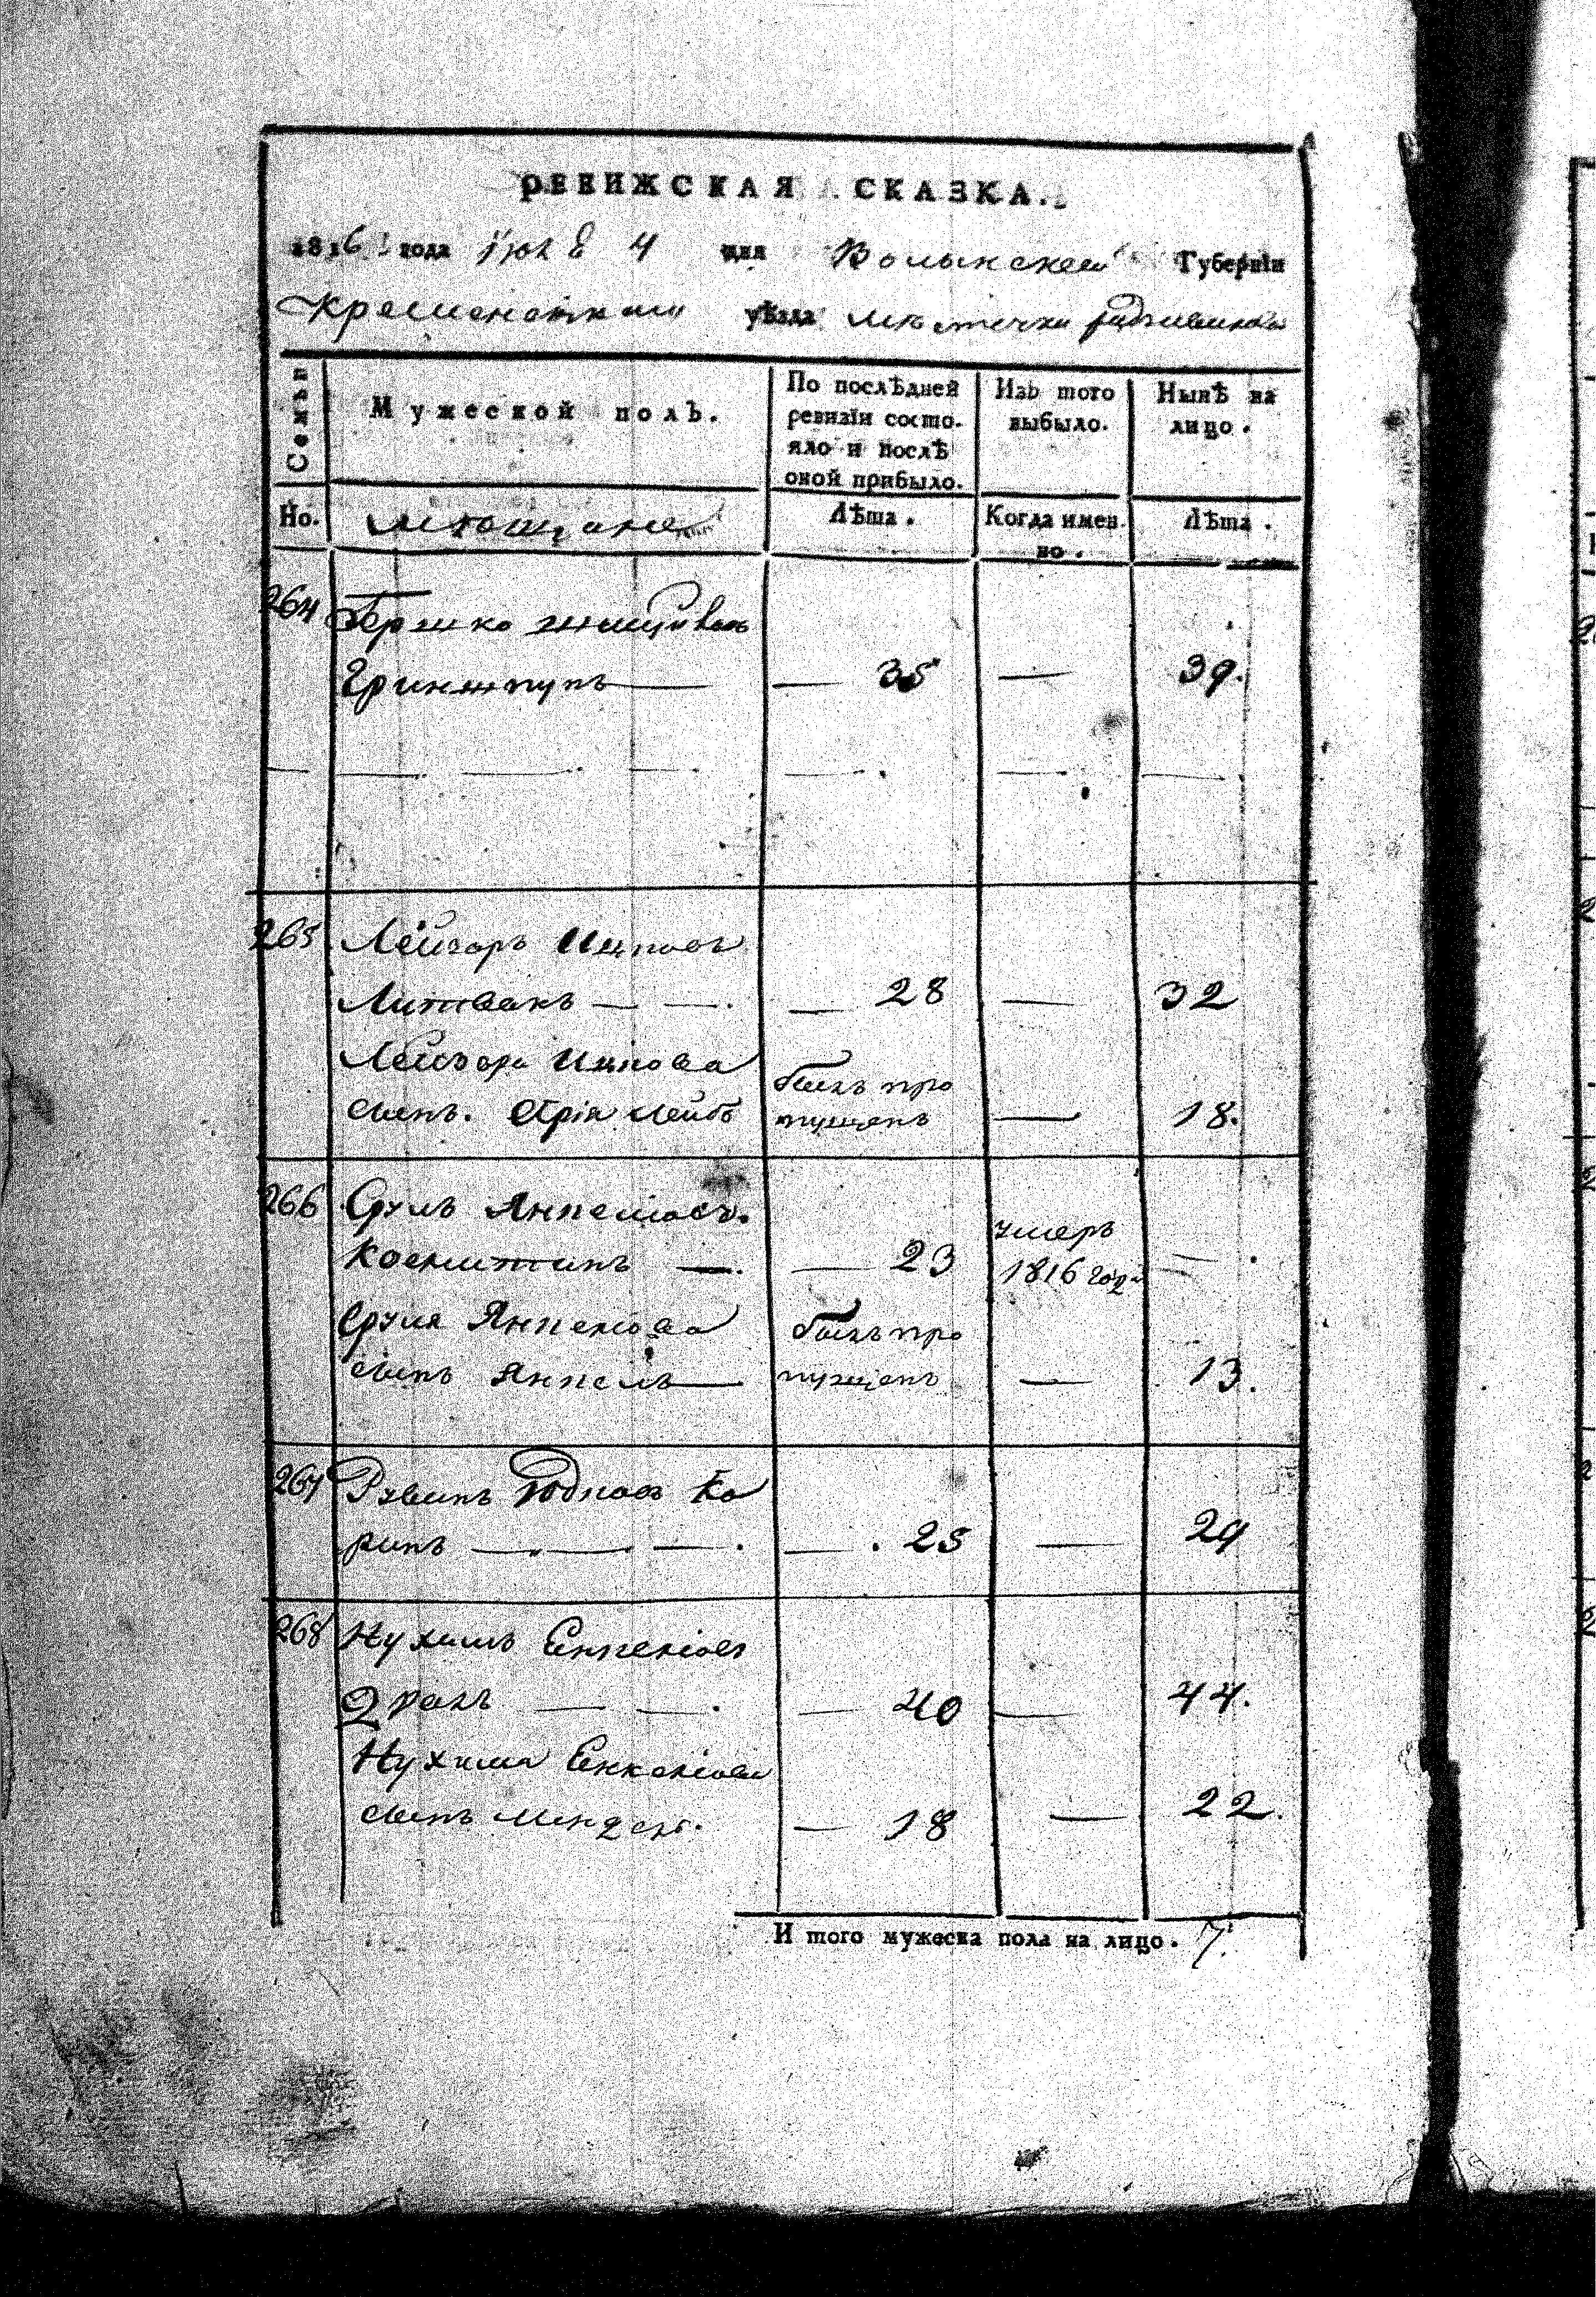 РЕВИЖСКАЯ СКАЗКА.
1816 года Іюля 4 дня Волынской Губерніи
Кременецкаго уѣзда мѣстечка Радзивилова
Семьи
Мужеской полъ.
По послѣдней ревизіи состояло и послѣ оной прибыло.
Изъ того выбыло.
Нынѣ на лицо.
Но.
мѣщане
Лѣта.
Когда имен но.
Лѣта.
264 Гершко
Гринштупъ — 35 — 39.
265 Лейзоръ Ицковъ
Литвакъ — 28 — 32
Лейзора Ицкова былъ про
сынъ. Арія Лейбъ пущенъ — 18.
266 Сруль Янкеліовъ. умеръ
— 23 1816 года —.
Сруля Янкеліова былъ про
сынъ Янкель — пущенъ — 13.
267 Рувинъ Юдковъ Ко
ринъ — 25 — 29
268 Нухимъ Енкеліовъ
Драхъ — 40 — 44.
Нухима Енкеліова
сынъ Мендель. — 18 — 22.
И того мужеска пола на лицо. 7.